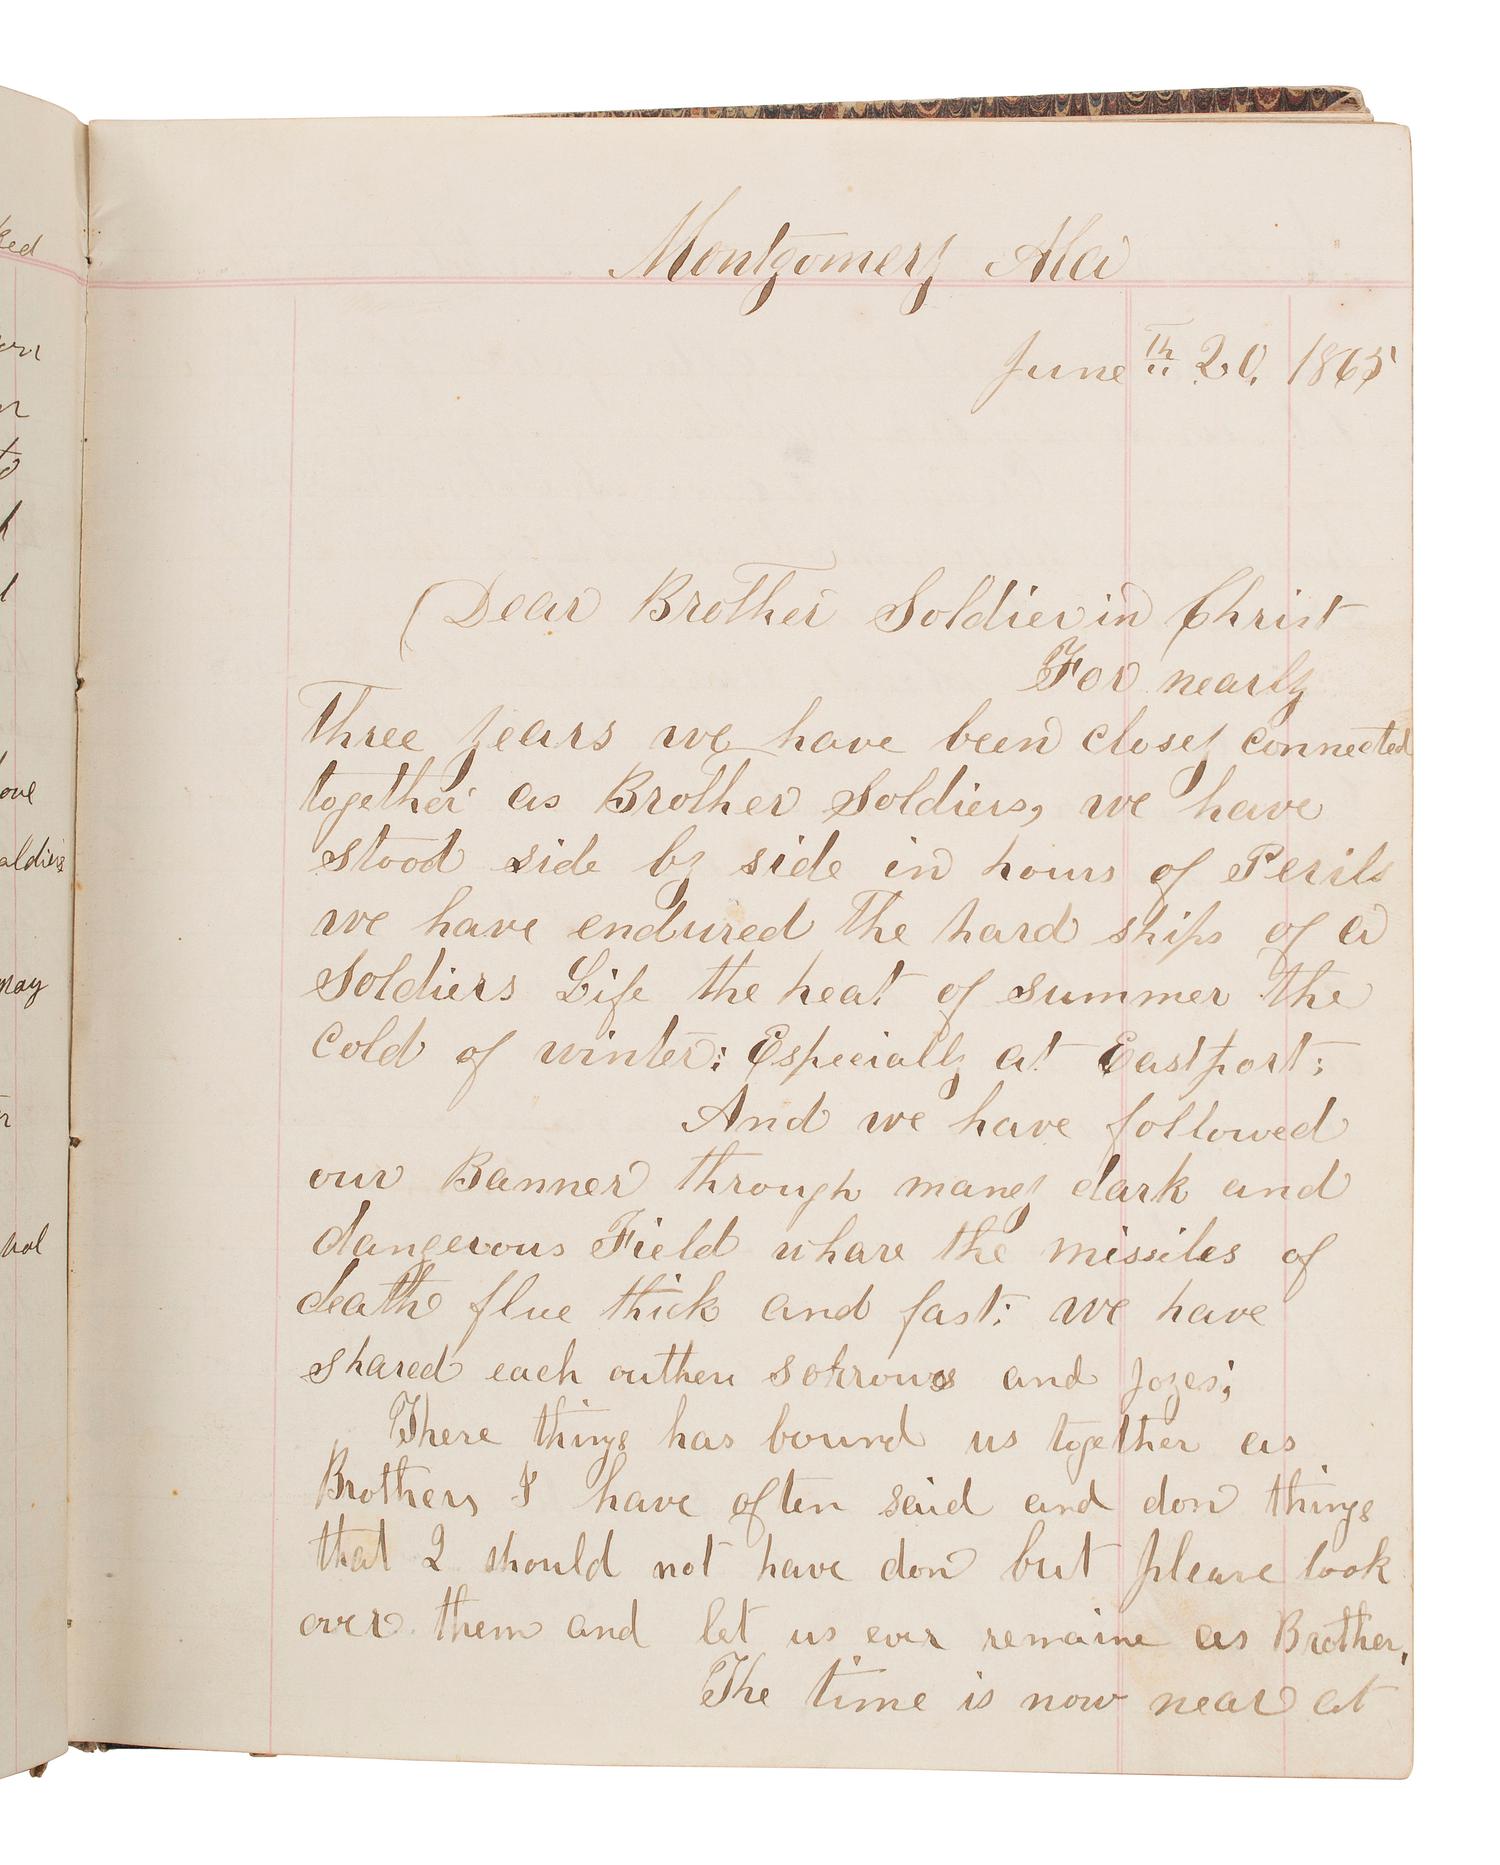 Montgomery Ala
June th 20, 1865
Dear Brother Soldier in Christ
For nearly
Three years we have been closey connected
together as Brother Soldiers, we have
stood side by side in hours of Perils
we have endured the hard ships of a
Soldiers Life the heat of summer the
cold of winter: Especially at Eastport;
And we have followed
our Banner through many dark and
dangerous Field whare the missiles of
death flue thick and fast: we have
shared each outhers sorrows and joyes;
These things has bound us together as
Brothers, I have often said and don things
that I should not have don but please look
over them and let us ever remaine as Brother,
The time is now near at
ked
to
ove
oldiers
may